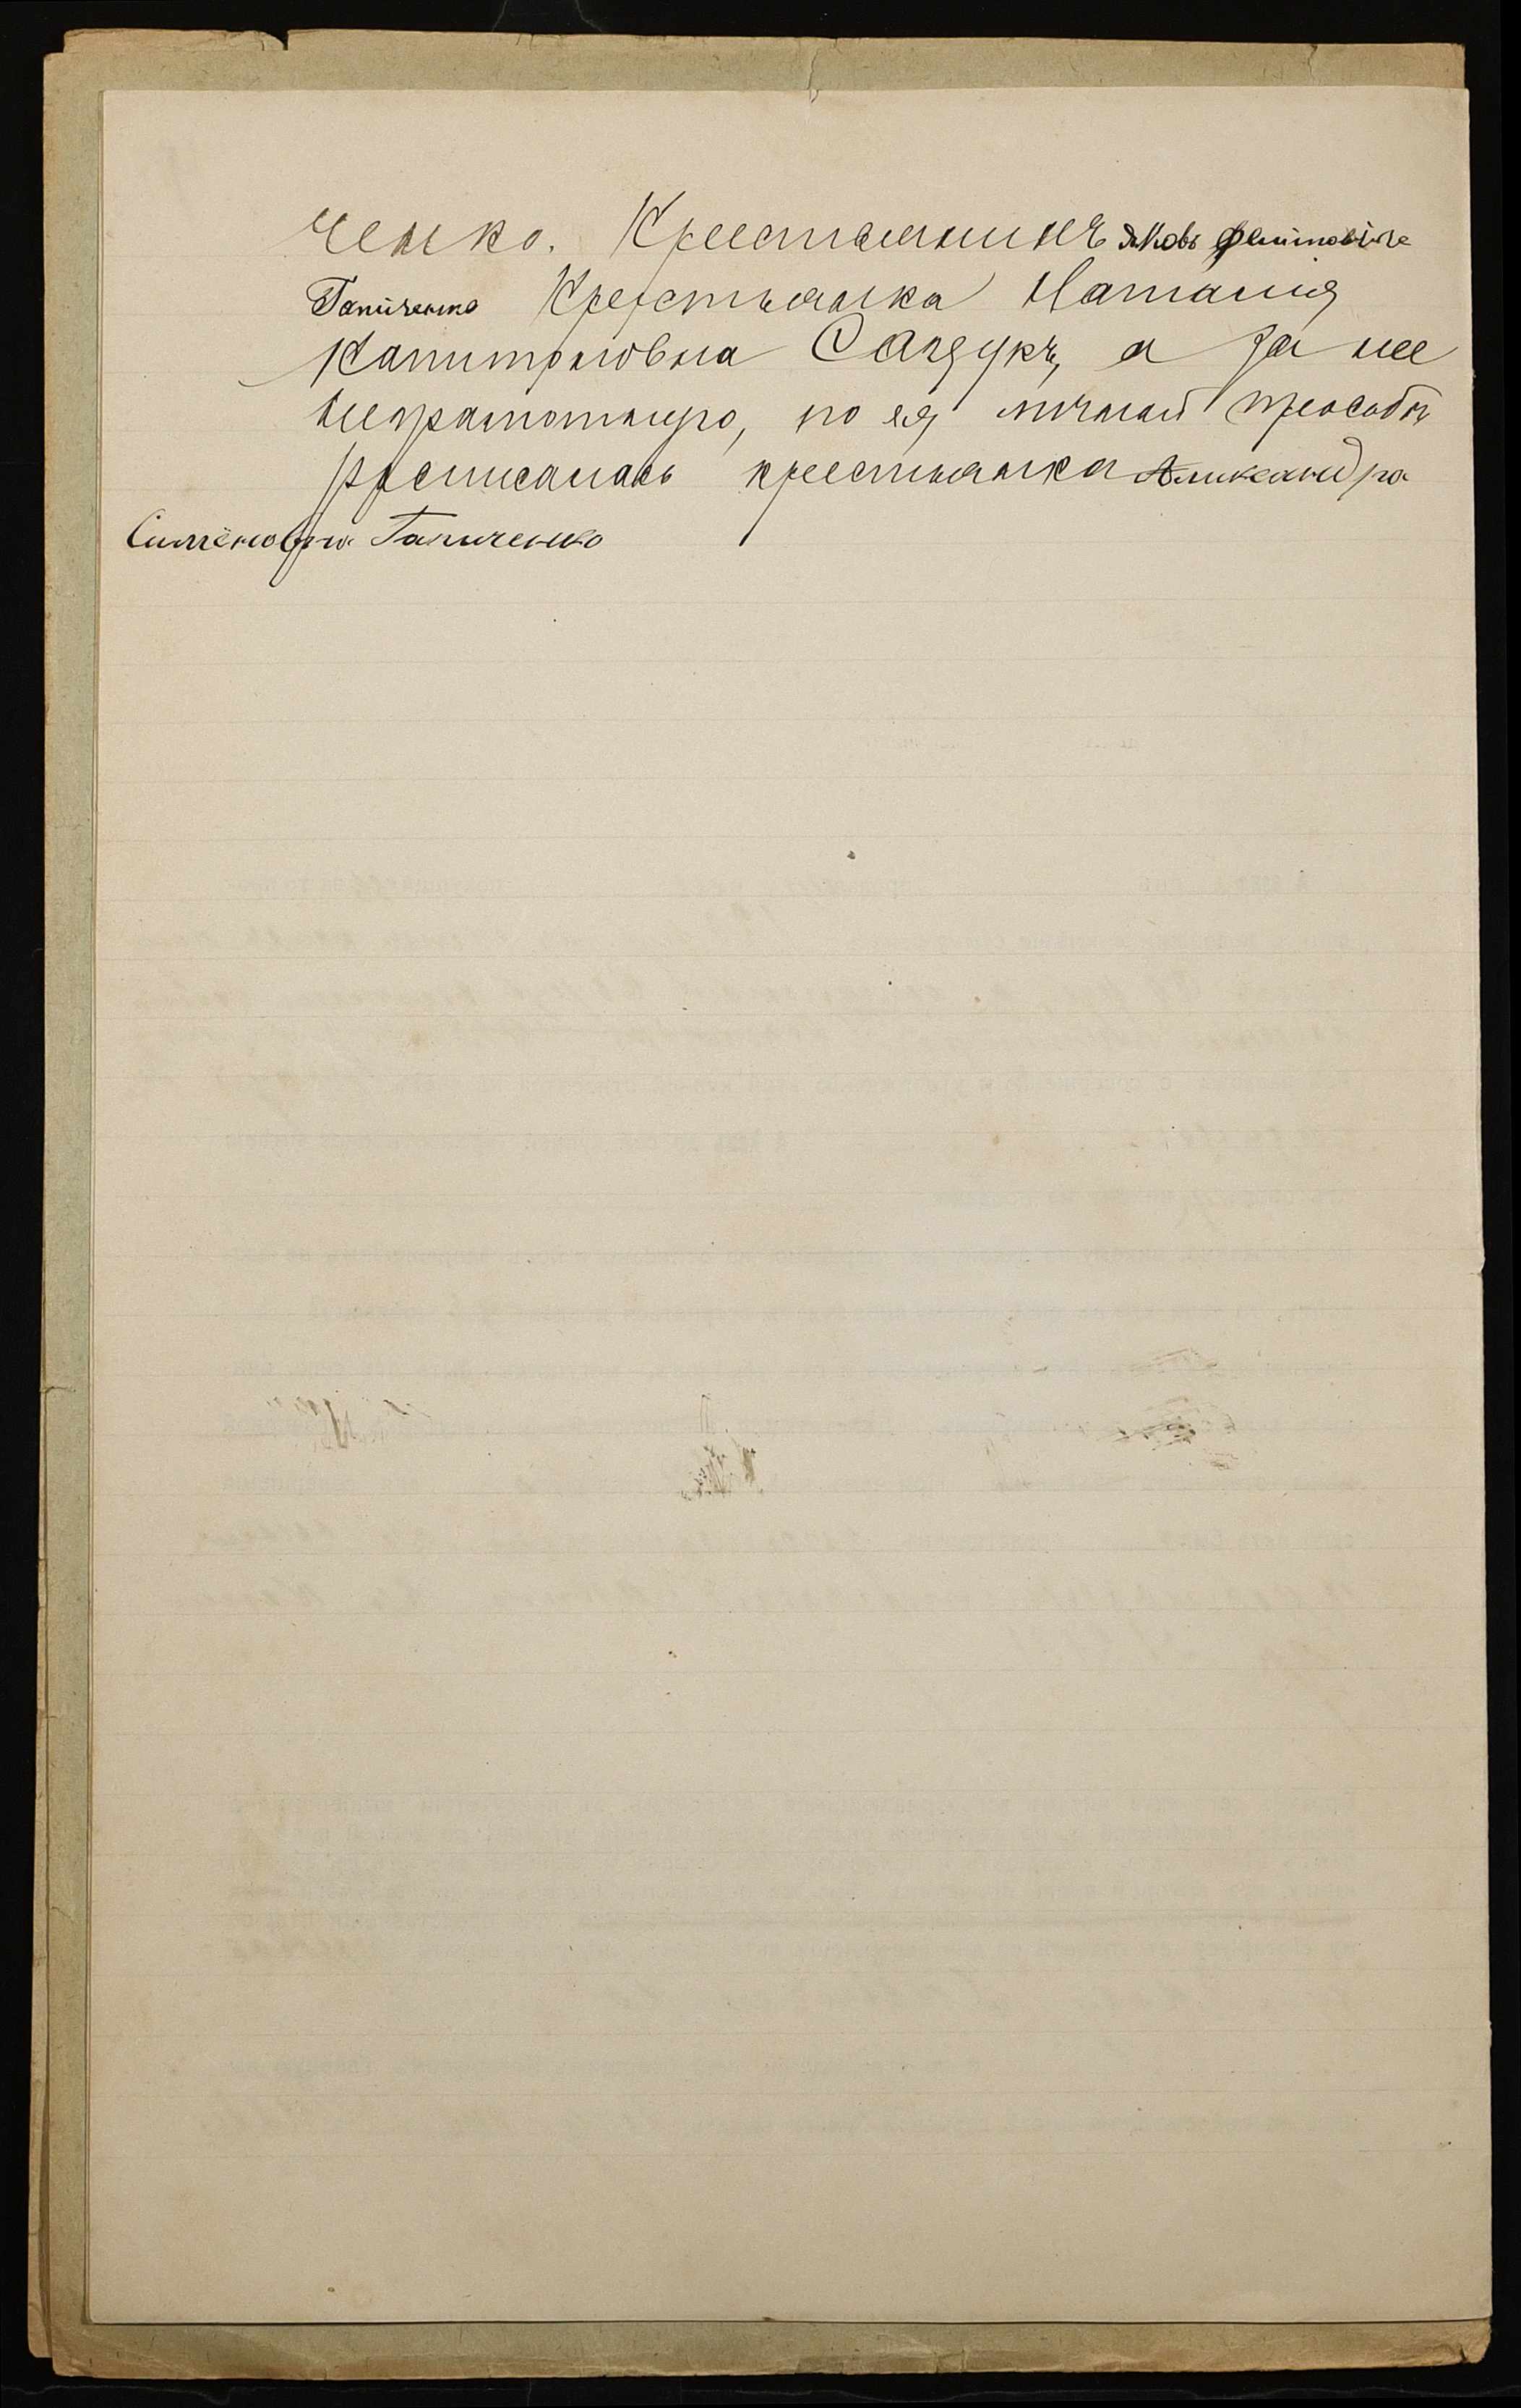 ченко. Крестьянинъ Яковъ
Гапиченко Крестьянка Наталия
Капитоновна Сандукъ, а за нее
неграмотную, по ея личной прозьбѣ
росписалась крестьянка Александра
Симёновна Гапиченко